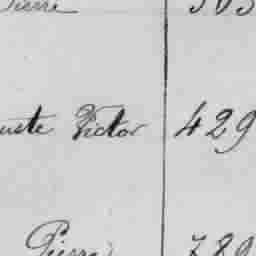 Pierre 303
uste Victor 429
Pierre 789